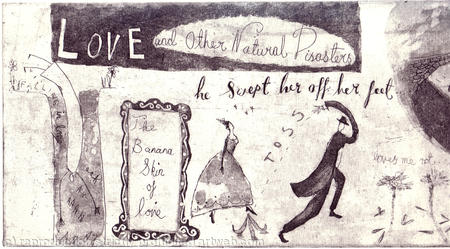 LOVE and Other Natural Disasters
he swept her off her feet
The
Banana
Skin
of
love
TOSS
loves me not
FALL
in love